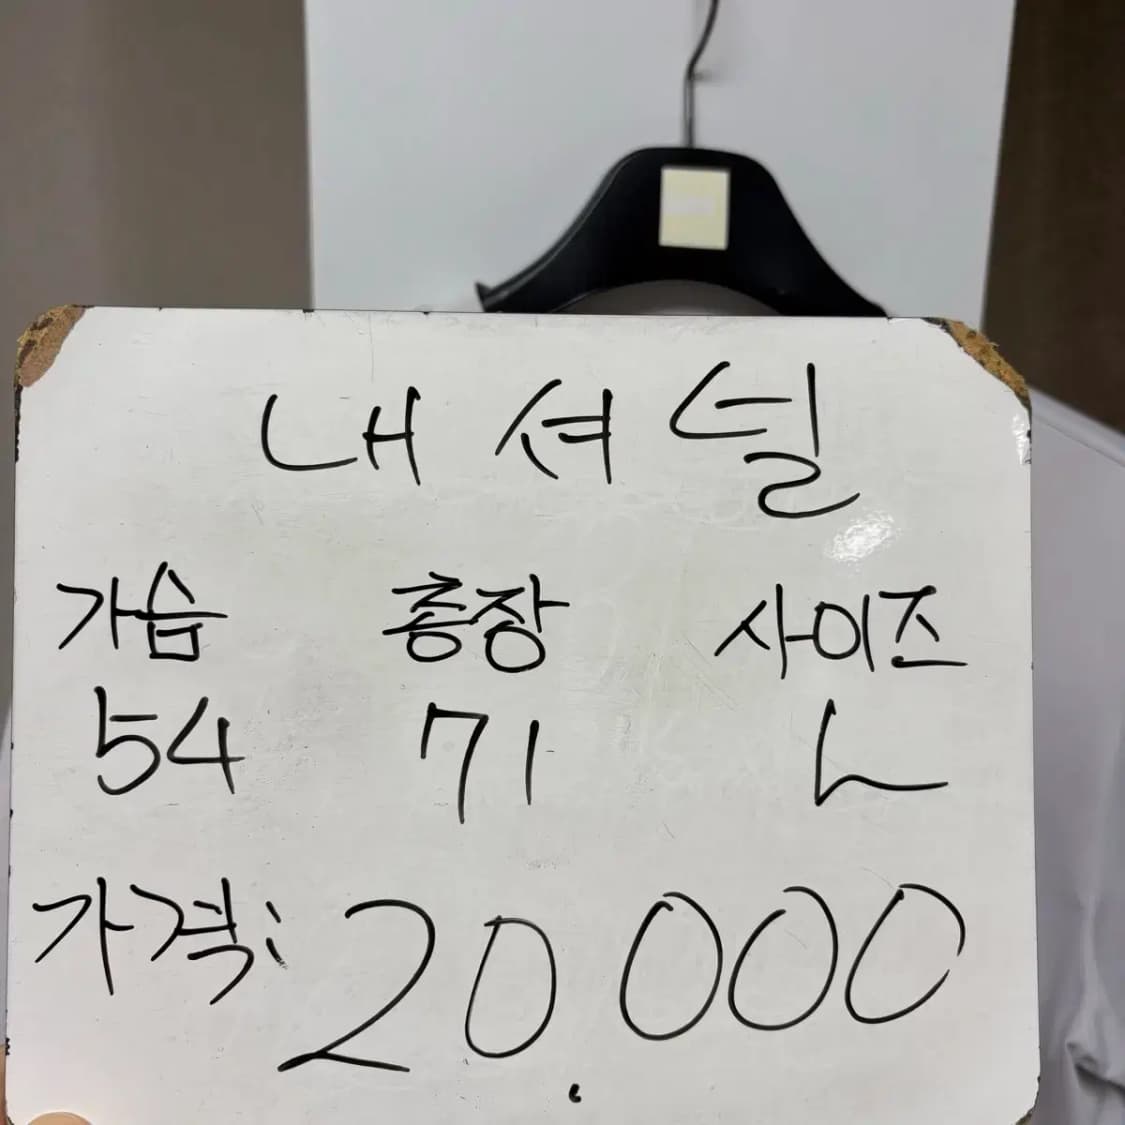 내셔널
가슴 총장 사이즈
54 71 L
가격: 20.000